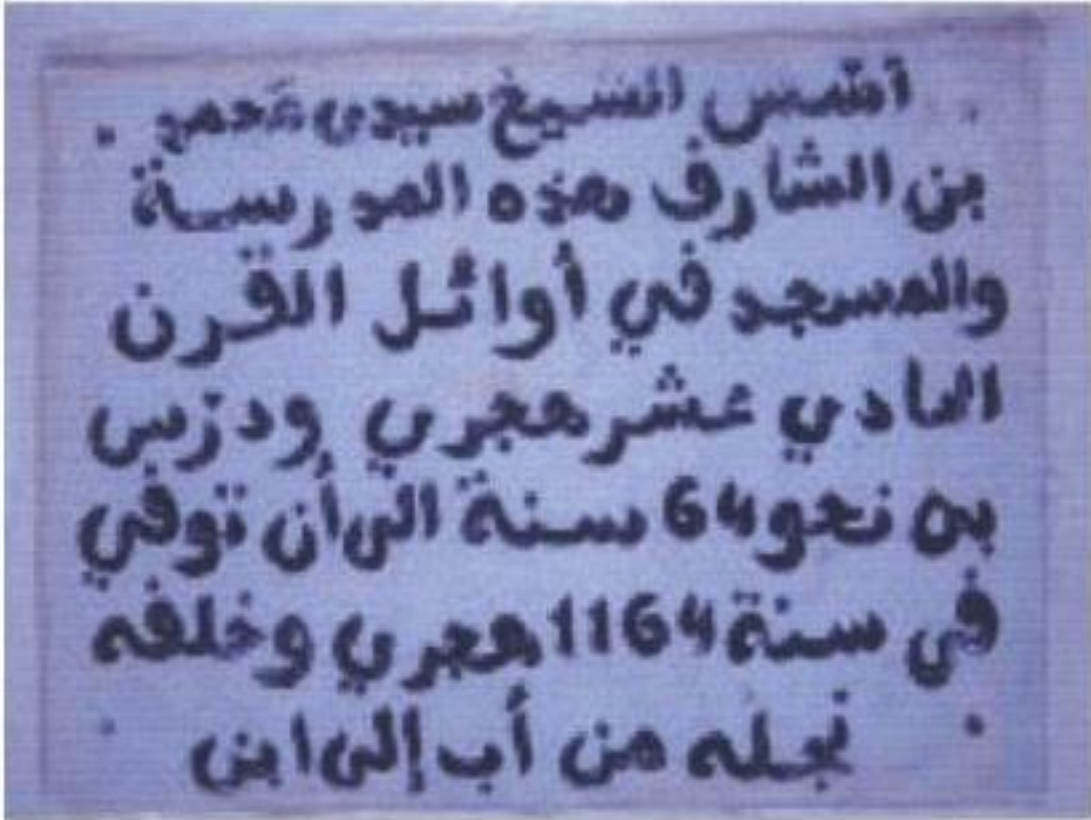 أسس الشيخ سيدي محمد
بن الشارف هذه المدرسة
والمسجد في أوائل القرن
الحادي عشر هجري ودرّس
به نحو 64 سنة الى أن توفي
في سنة 1164 هجري وخلفه
نجله من أب إلى ابن